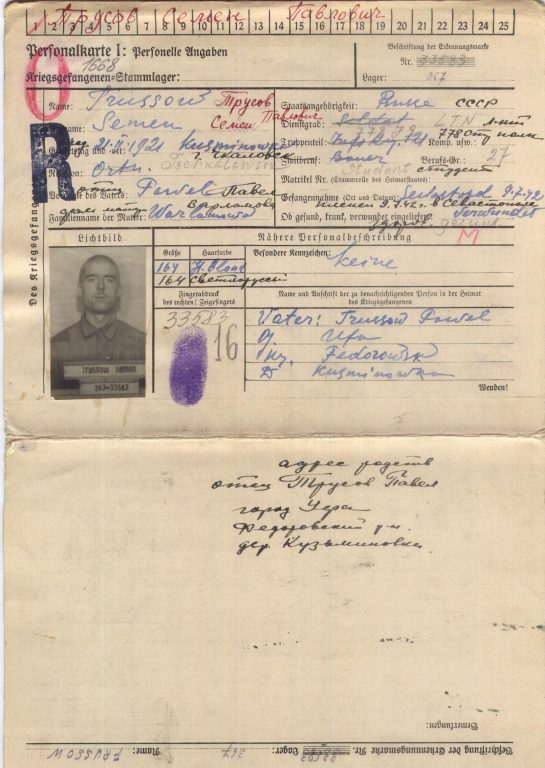 Трусов Семен Павлович
1 2 3 4 5 6 7 8 9 10 11 12 13 14 15 16 17 18 19 20 21 22 23 24 25
Personalkarte I: Personelle Angaben
1668
Kriegsgefangenen-Stammlager:
Beschriftung der Erkennungsmarke
Nr. 33583
Lager: 367
Des Kriegsgefangenen
R
Name: Trussow Трусов
Semen Семен Павлович
21. II. 1921 Kusminowka
г. Чкаловск
Tschkalowsk
Religion: Orth.
отец Pawel Павел
Familienname der Mutter: Warlamowa Варламова
Staatsangehörigkeit: Russe СССР
Dienstgrad: Soldat LTN л-нт
778
Truppenteil: 778 Komp. usw.:
Zivilberuf: Bauer Berufs-Gr.: 27
Student студент
Matrikel Nr. (Stammrolle des Heimatstaates):
Gefangennahme (Ort und Datum): Sewastopol 9.7.42
пленен 9.7.42 г. в Севастополе
Ob gesund, krank, verwundet eingeliefert: verwundet
здоров. gesund
M
Lichtbild
Nähere Personalbeschreibung
Größe Haarfarbe
Besondere Kennzeichen:
164 H. Blond
keine
164 светлорусый
Fingerabdruck
des rechten! Zeigefingers
Name und Anschrift der zu benachrichtigenden Person in der Heimat
des Kriegsgefangenen
33583
16
Vater: Trussow Pawel
G. Ufa
Fedorowsk
D Kusminowka
Trussow Semen
367-33583
Wenden!
адрес родств
отец Трусов Павел
город Уфа
Федоровский р-н.
дер. Кузьминовка.
Bemerkungen:
Beschriftung der Erkennungsmarke Nr. 33583 Lager: 367 Name: TRUSSOW